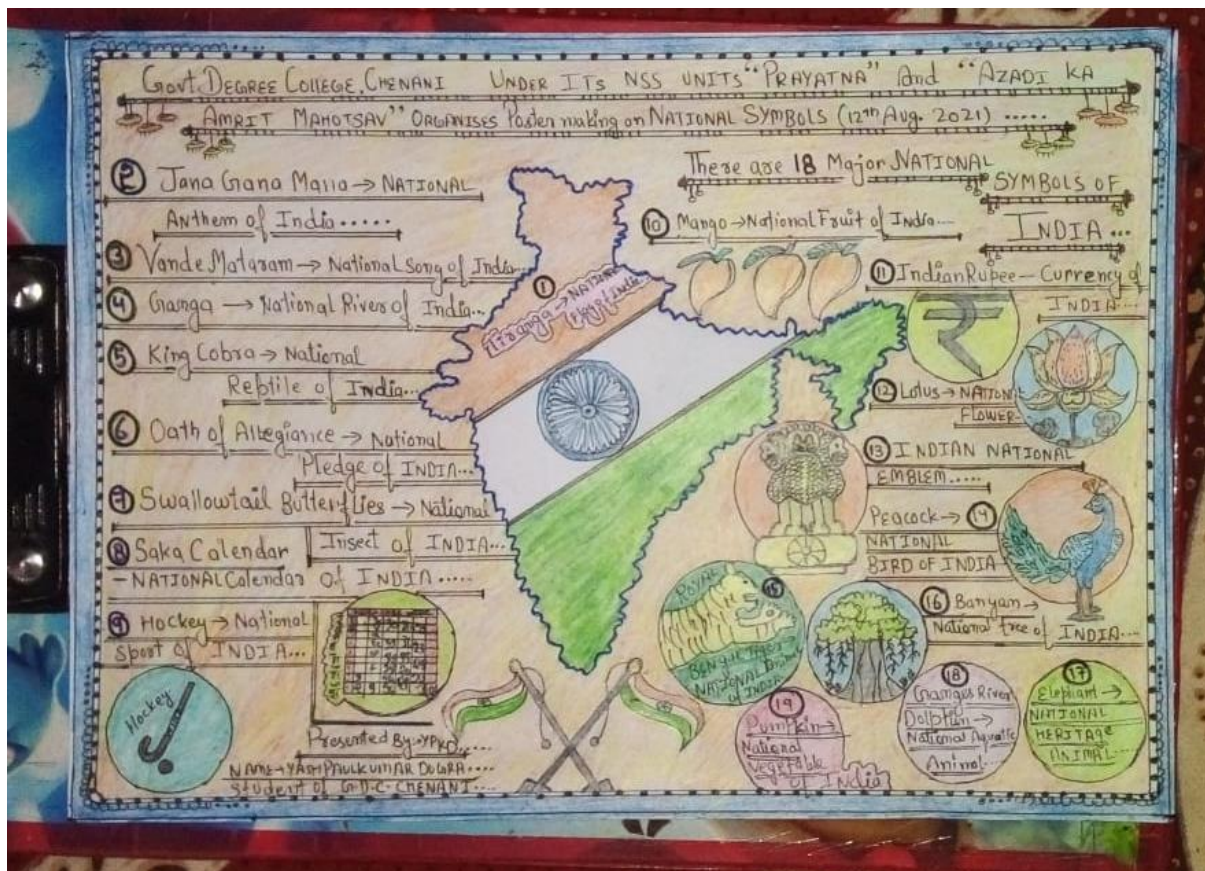 Govt. DEGREE COLLEGE, CHENANI UNDER ITs NSS UNITS "PRAYATNA" And "AZADI KA
AMRIT MAHOTSAV" ORGANISES Poster making on NATIONAL SYMBOLS (12th Aug. 2021) .....
There are 18 Major NATIONAL
SYMBOLS OF
INDIA ...
① Tiranga → NATIONAL
Flag of India
② Jana Gana Mana → NATIONAL
Anthem of India .....
③ Vande Mataram → National Song of India
④ Ganga → National River of India...
⑤ King Cobra → National
Reptile of India...
⑥ Oath of Allegiance → National
Pledge of INDIA...
⑦ Swallowtail Butterflies → National
Insect of INDIA...
⑧ Saka Calendar
- NATIONAL Calendar of INDIA .....
⑨ Hockey → National
sport of INDIA...
Hockey
Presented By:- YPKD.....
NAME → YASH PAUL KUMAR DOGRA....
Student of G.D.C. CHENANI....
⑩ Mango → National Fruit of India....
⑪ Indian Rupee — Currency of
INDIA...
₹
⑫ Lotus → NATIONAL
FLOWER
⑬ INDIAN NATIONAL
EMBLEM.....
Peacock → ⑭
NATIONAL
BIRD OF INDIA
ROYAL ⑮
BENGAL TIGER
NATIONAL Animal
of INDIA
⑯ Banyan →
National tree of INDIA....
⑰
Elephant →
NATIONAL
HERITAGE
ANIMAL...
⑱
Ganges River
Dolphin →
National Aquatic
Animal...
⑲
Pumpkin →
National
Vegetable
of India